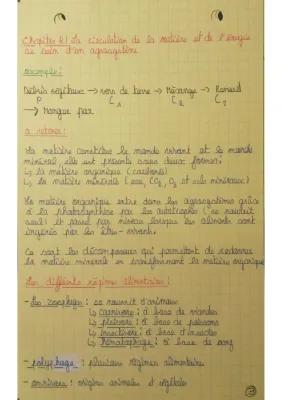 Chapitre 4: La circulation de la matière et de l'énergie
au sein d'un agrosystème
exemple:
Débris végétaux → vers de terre → Mésange → Renard
P C1 C2 C3
→ Mange par
à retenir:
La matière constitue le monde vivant et le monde
minéral, elle est présente sous deux formes:
↳ la matière organique (carbonée)
↳ la matière minérale (eau, CO2, O2 et sels minéraux)
La matière organique entre dans les agrosystèmes grâce
à la photosynthèse par les autotrophes (se nourrit
seul) et passe par niveau lorsque les aliments sont
ingérés par les êtres-vivants.
Ce sont les décomposeurs qui permettent de redonner
la matière minérale en transformant la matière organique
Les différents régimes alimentaires:
- Les zoophages: se nourrit d'animaux
↳ carnivore: à base de viandes
↳ piscivore: à base de poissons
↳ insectivore: à base d'insectes
↳ hématophage: à base de sang
- polyphage: plusieurs régimes alimentaires
- omnivores: origine animales et végétales